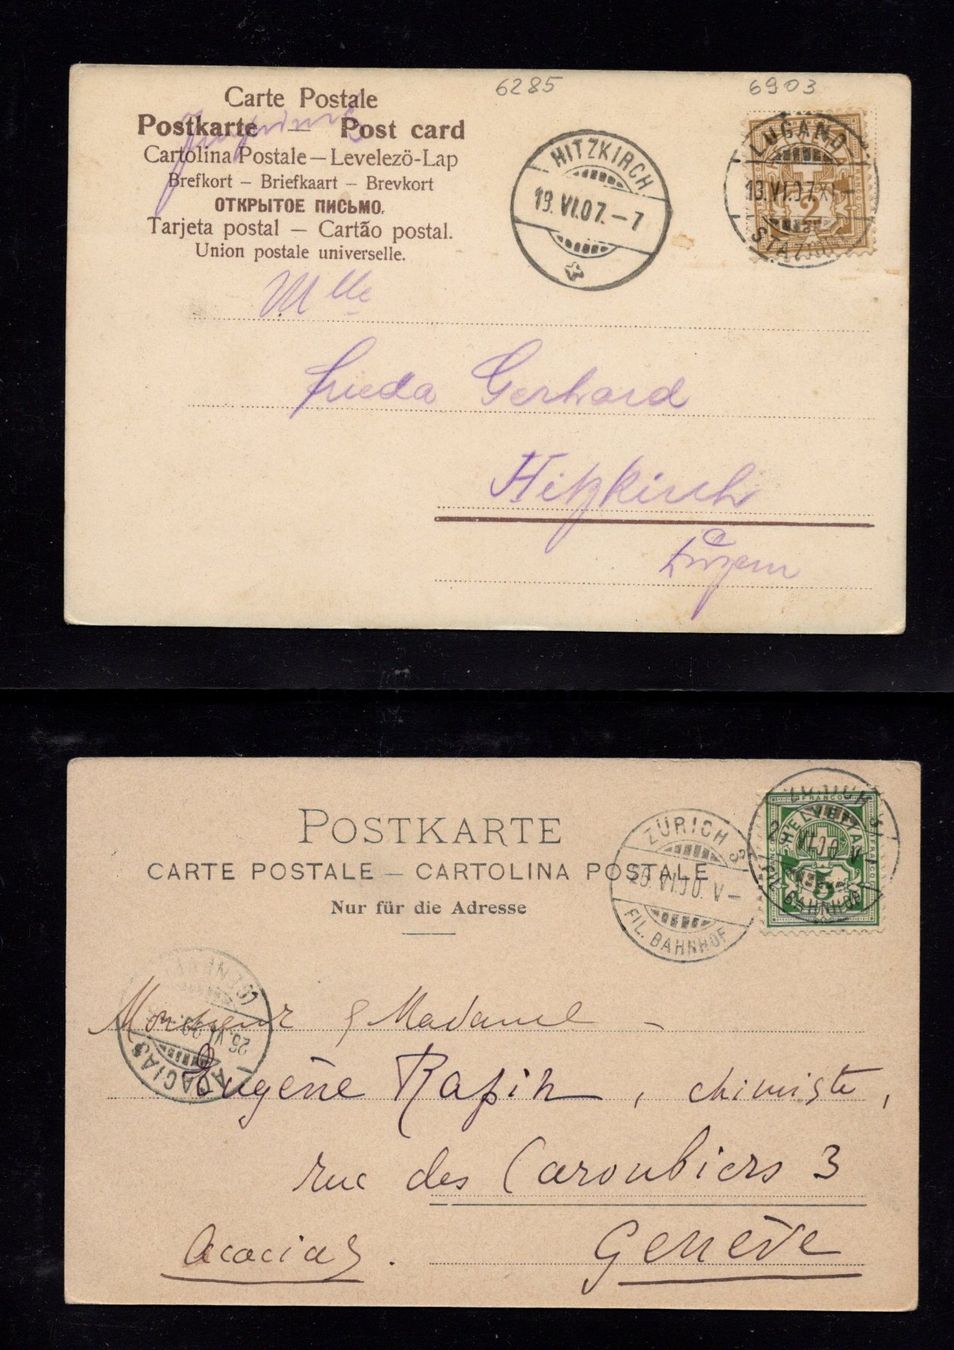 6285
6903
Carte Postale
Postkarte — Post card
Cartolina Postale – Levelezö-Lap
Brefkort – Briefkaart – Brevkort
ОТКРЫТОЕ ПИСЬМО.
Tarjeta postal — Cartão postal.
Union postale universelle.
HITZKIRCH
19.VI.07.–7
LUGANO
19.VI.07.XI
STAZ.
2
Mlle
Frieda Gerhard
Hitzkirch
Luzern
POSTKARTE
CARTE POSTALE – CARTOLINA POSTALE
Nur für die Adresse
ZÜRICH 3
VI.00. V–
FIL. BAHNHOF
FRANCO
HELVETIA
5
VI.00 V
BAHNHOF
25 VI
ACACIAS
Monsieur & Madame –
Eugène Rapin, chimiste,
rue des Caroubiers 3
Acacias. Genève